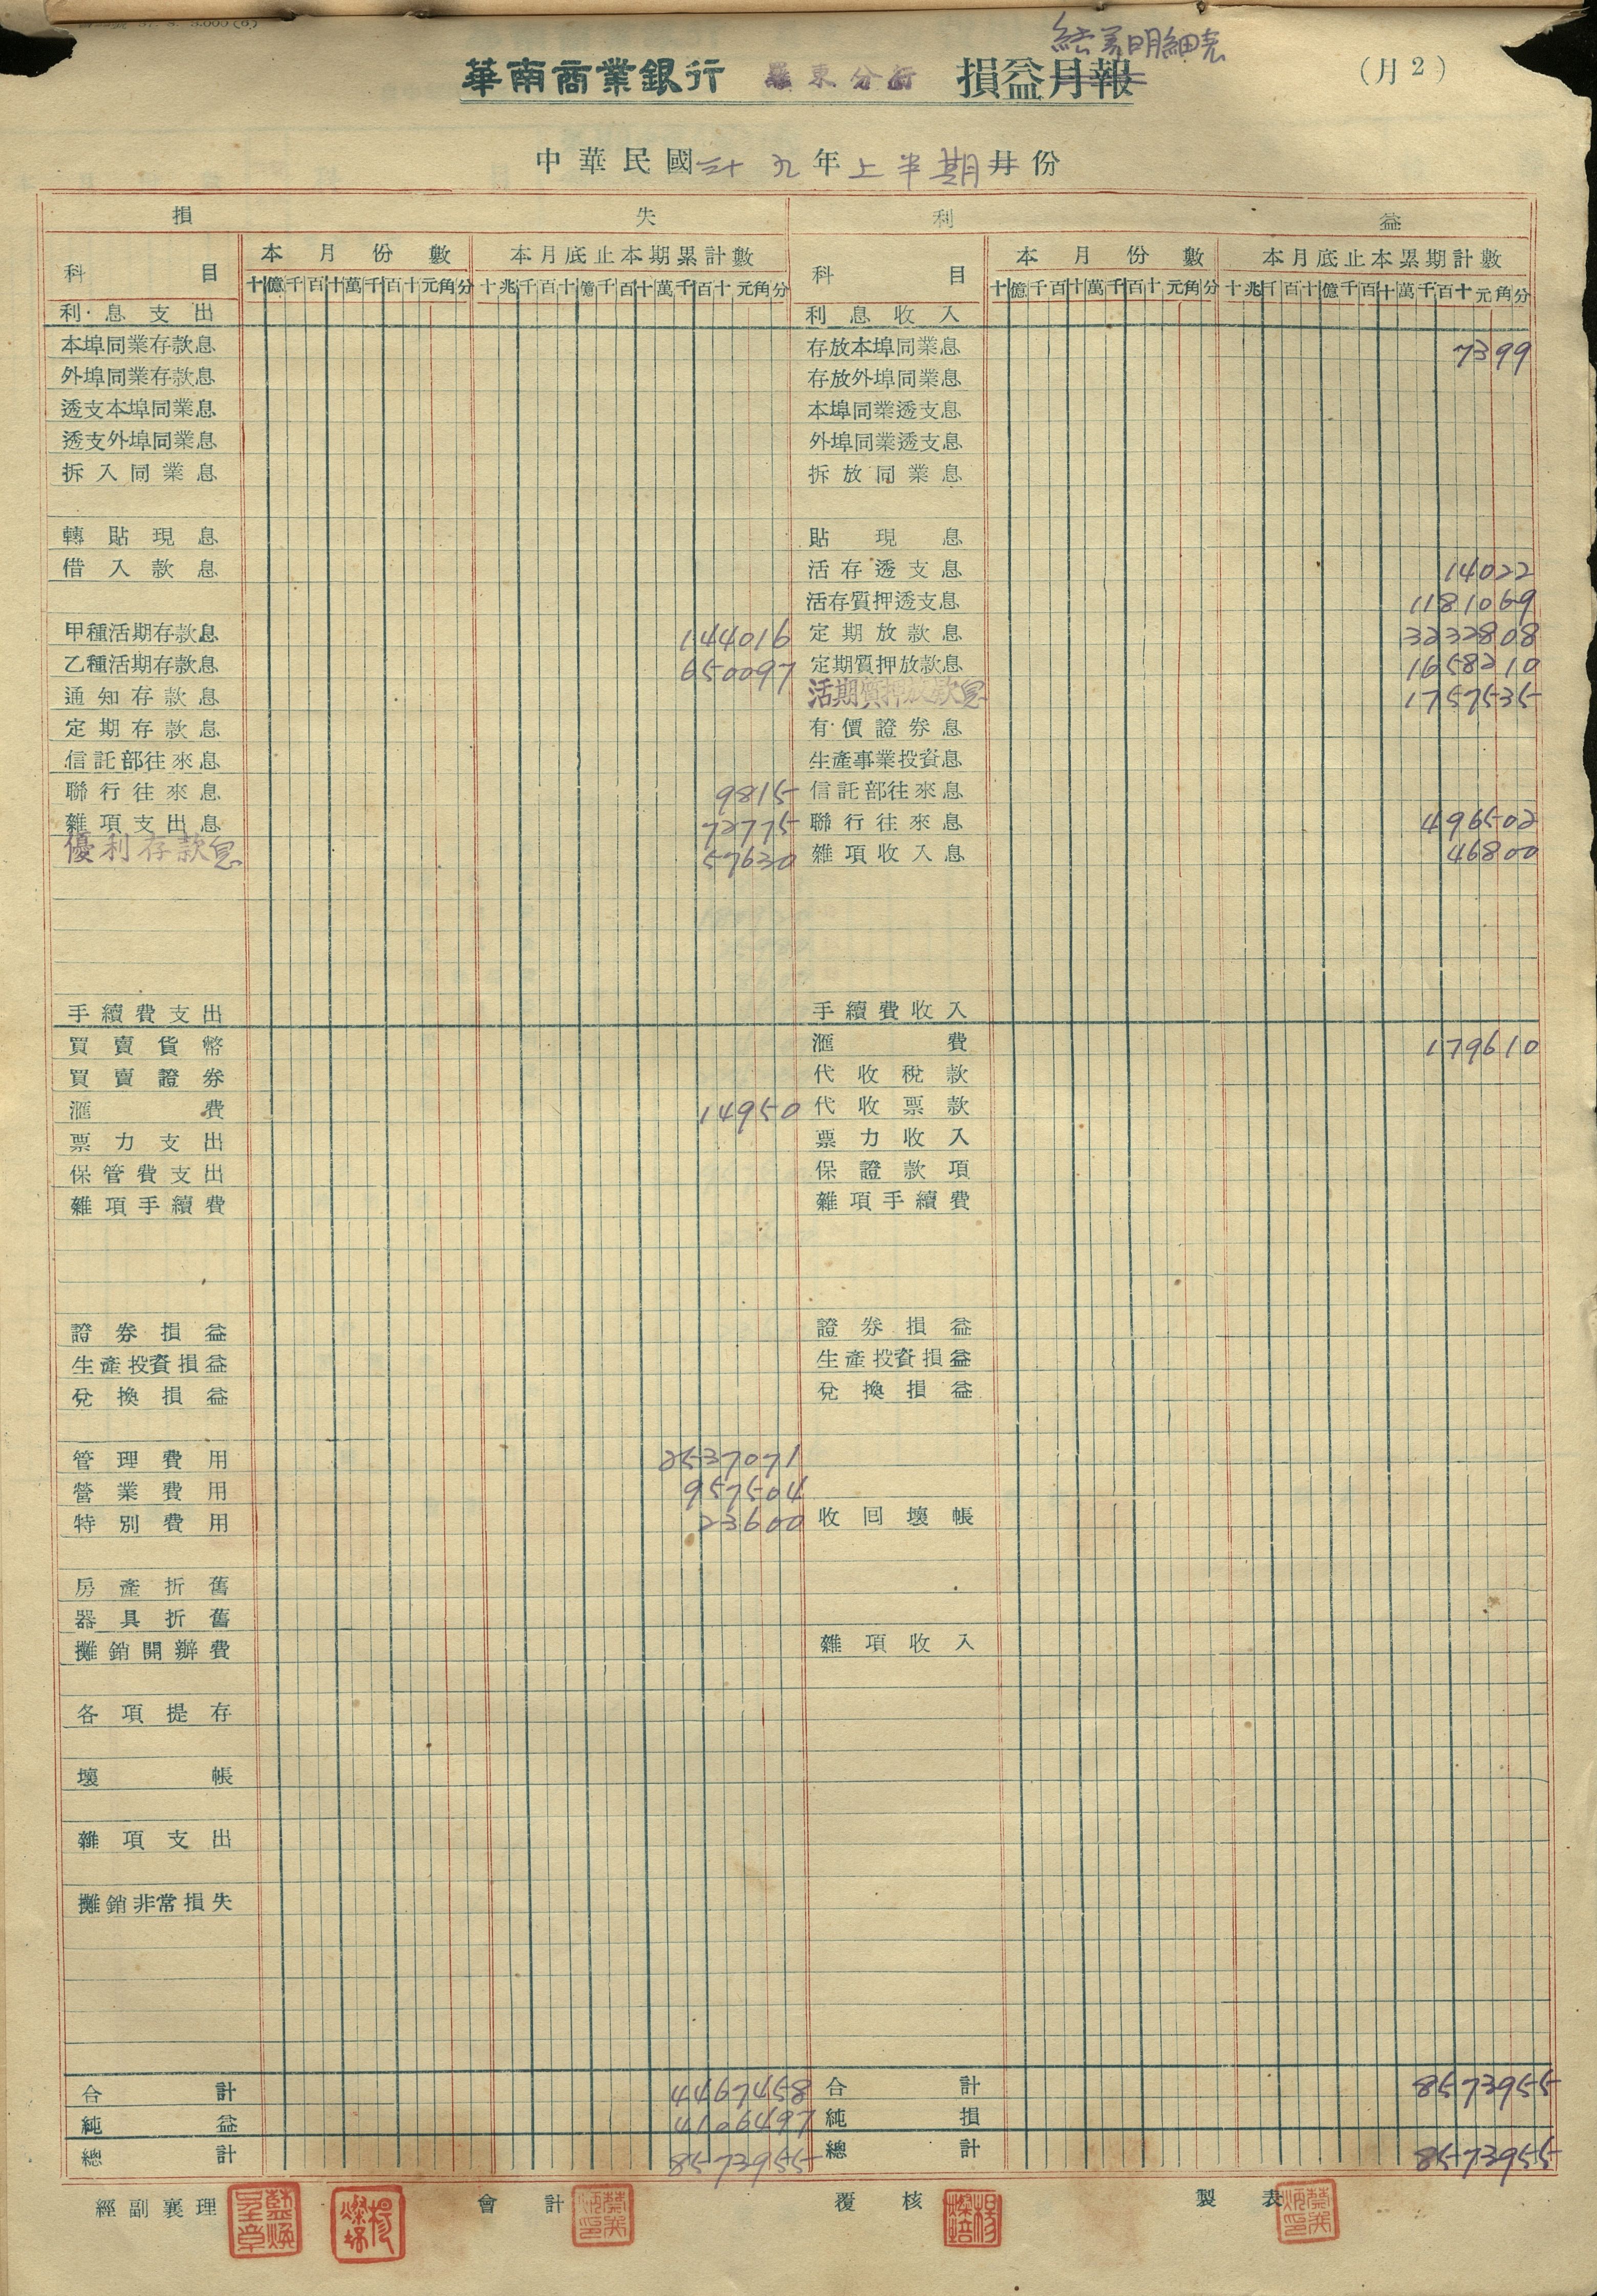 3.000(6)
結算明細表
華南商業銀行 羅東分行 損益月報 (月2)
中華民國三十九年上半期月份
損 失 利 益
科目 本月份數 本月底止本期累計數 科目 本月份數 本月底止本累期計數
十億千百十萬千百十元角分 十兆千百十億千百十萬千百十元角分 十億千百十萬千百十元角分 十兆千百十億千百十萬千百十元角分
利息支出 利息收入
本埠同業存款息 存放本埠同業息 7399
外埠同業存款息 存放外埠同業息
透支本埠同業息 本埠同業透支息
透支外埠同業息 外埠同業透支息
拆入同業息 拆放同業息
轉貼現息 貼現息
借入款息 活存透支息 14022
活存質押透支息 1181069
甲種活期存款息 144016 定期放款息 3232808
乙種活期存款息 650097 定期質押放款息 1658210
通知存款息 活期質押放款息 1757535
定期存款息 有價證券息
信託部往來息 生產事業投資息
聯行往來息 9815 信託部往來息
雜項支出息 72775 聯行往來息 496502
優利存款息 57630 雜項收入息 46800
手續費支出 手續費收入
買賣貨幣 滙費 179610
買賣證券 代收稅款
滙費 14950 代收票款
票力支出 票力收入
保管費支出 保證款項
雜項手續費 雜項手續費
證券損益 證券損益
生產投資損益 生產投資損益
兌換損益 兌換損益
管理費用 2537071
營業費用 957504
特別費用 23600 收回壞帳
房產折舊
器具折舊
攤銷開辦費 雜項收入
各項提存
壞帳
雜項支出
攤銷非常損失
合計 4467458 合計 8573955
純益 4106497 純損
總計 8573955 總計 8573955
經副襄理 會計 覆核 製表